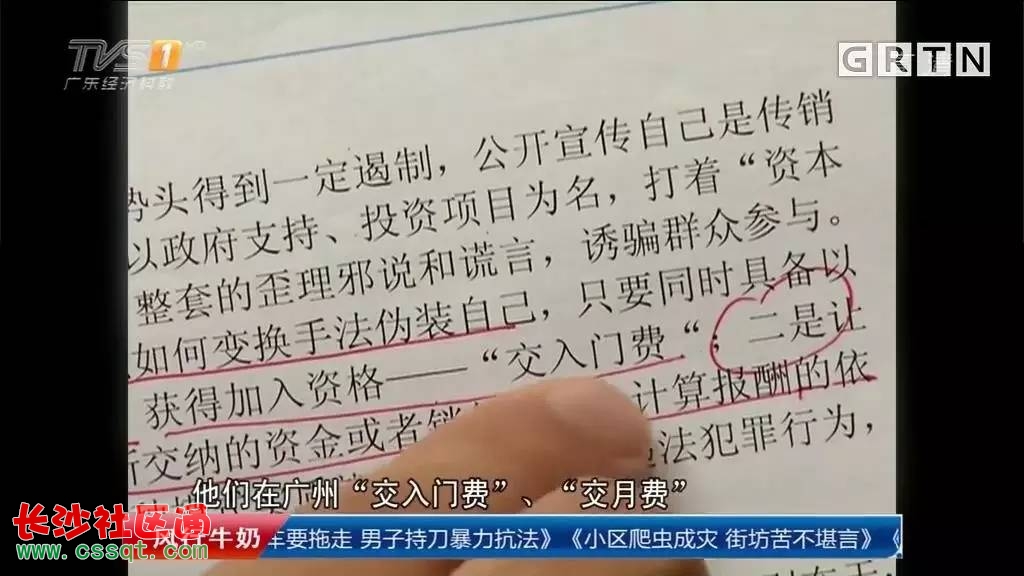 TVS1
广东经济科教
GRTN
势头得到一定遏制，公开宣传自己是传销
以政府支持、投资项目为名，打着“资本
整套的歪理邪说和谎言，诱骗群众参与。
如何变换手法伪装自己，只要同时具备以
获得加入资格——“交入门费“；二是让
所交纳的资金或者销 计算报酬的依
法犯罪行为，
他们在广州“交入门费”、“交月费”
长沙社区通
www.cssqt.com
风行牛奶
车要拖走 男子持刀暴力抗法》《小区爬虫成灾 街坊苦不堪言》《